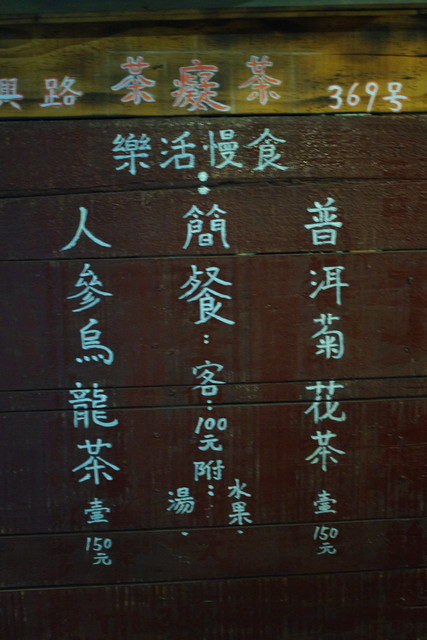 興路 茶癮茶 369号
樂活慢食
普洱菊花茶 壹 150元
簡餐:客:100元附:水果.湯.
人參烏龍茶 壹 150元